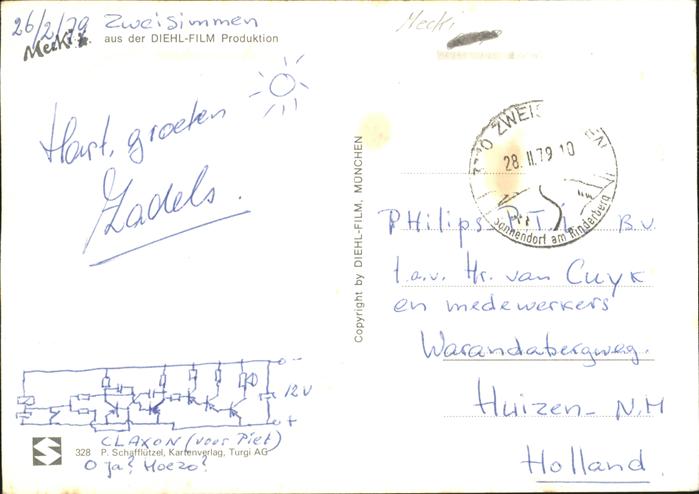 26/2/79 Zweisimmen
Mecki
aus der DIEHL-FILM Produktion
Hart. groeten
Zadels.
12V
CLAXON (voor Piet)
328 P. Schafflützel, Kartenverlag, Turgi AG
O ja? Hoezo?
Copyright by DIEHL-FILM, MÜNCHEN
Mecki
ZWEIS
28. II. 79 10
Sonnendorf am Rinderberg
PHilips P.T.I. B.V.
t.a.v. Hr. van Cuyk
en medewerkers
Warandabergweg.
Huizen- N.H
Holland.